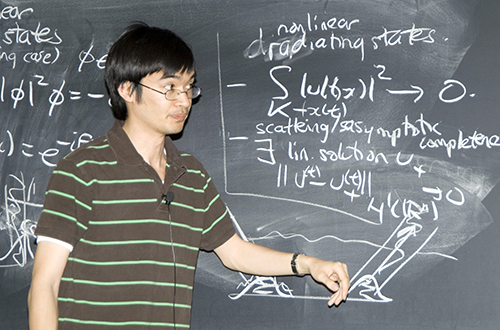 near
states
ing case)
|ϕ|²ϕ = -
) = e^-i
nonlinear
radiating states.
- ∫ |u(t,x)|² → 0.
K + x(t)
- scattering/asymptotic
completeness
∃ lin. solution u₊
||u(t) - u₊(t)|| → 0